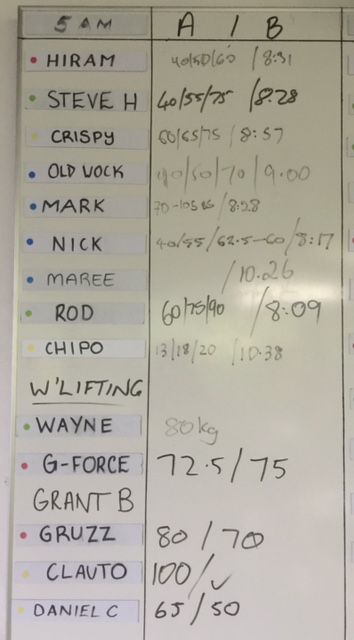 5 AM A / B
HIRAM 40/50/60 / 8:31
STEVE H 40/55/75 / 8:28
CRISPY 60/65/75 / 8:57
OLD VOCK /70 / 9.00
MARK / 8:28
NICK 40/55/62.5-60 / 8:17
MAREE / 10.26
ROD 60/75/90 / 8:09
CHIPO 13/18/20 / 10.38
W'LIFTING
WAYNE 80kg
G-FORCE 72.5/75
GRANT B
GRUZZ 80 / 70
CLAUTO 100/✓
DANIEL C 65/50